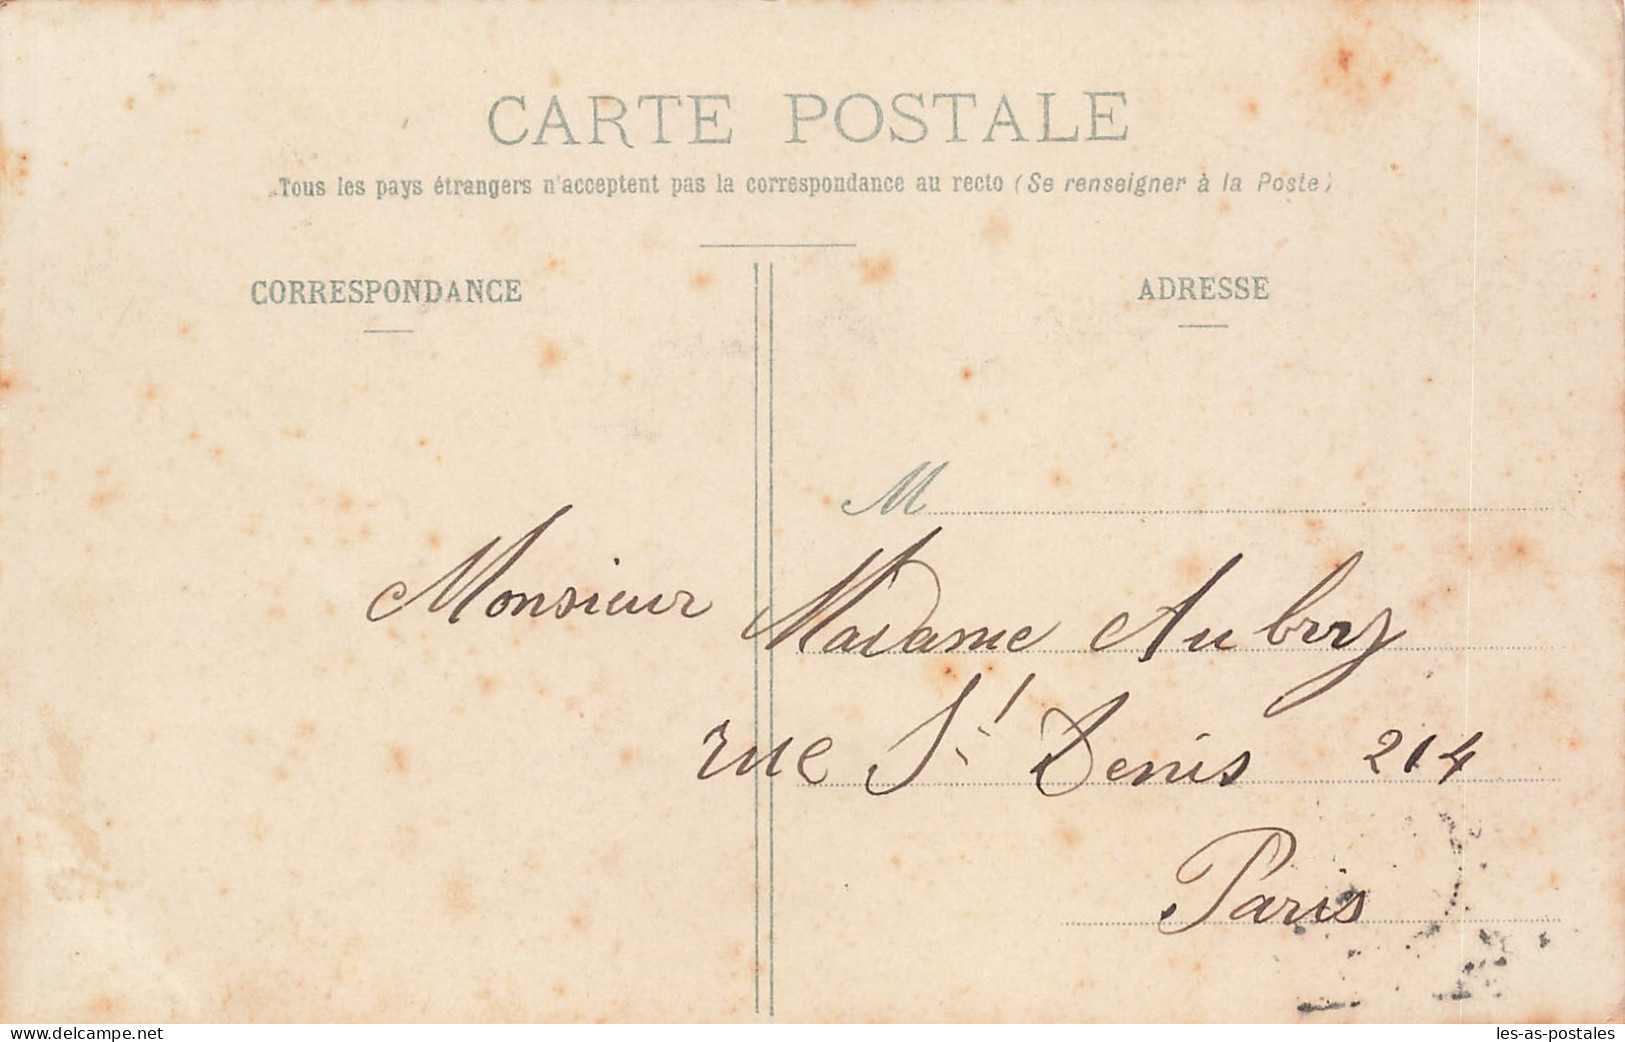 CARTE POSTALE
Tous les pays étrangers n'acceptent pas la correspondance au recto (Se renseigner à la Poste)
CORRESPONDANCE
ADRESSE
M
Monsieur Madame Aubry
rue St Denis 214
Paris
www.delcampe.net
les-as-postales